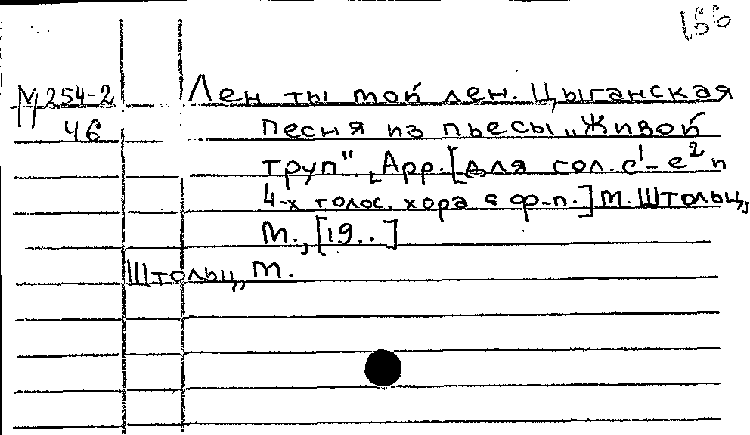 156
М 254-2
46
Лен ты мой лен. Цыганская
песня из пьесы „Живой
труп". Арр. [для сол. c¹-e² и
4-х голос. хора с ф-п.] М. Штольц,
М., [19..]
Штольц, М.